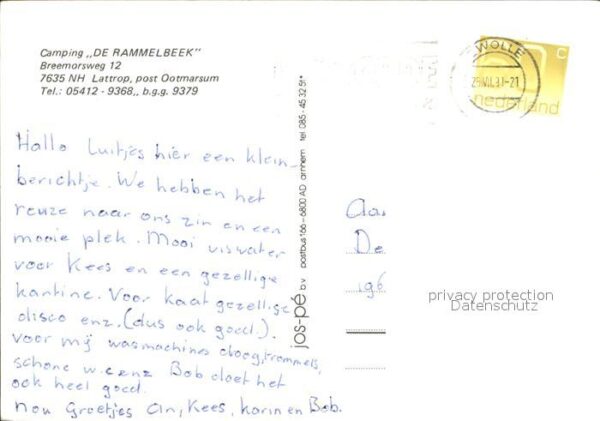 Camping „DE RAMMELBEEK"
Breemorsweg 12
7635 NH Lattrop, post Ootmarsum
Tel.: 05412 - 9368,, b.g.g. 9379
Hallo Luitjes hier een klein
berichtje. We hebben het
reuze naar ons zin en een
mooie plek. Mooi viswater
voor Kees en een gezellige
kantine. Voor Kaat gezellige
disco enz. (dus ook goed.).
voor mij wasmachines droogtrommels,
schone w.c enz Bob doet het
ook heel goed.
nou Groetjes An, Kees, Karin en Bob.
jos-pé b.v. postbus 166-6800 AD arnhem tel. 085-45 32 51*
ZWOLLE
nederland
c
Aa
De
196
privacy protection
Datenschutz